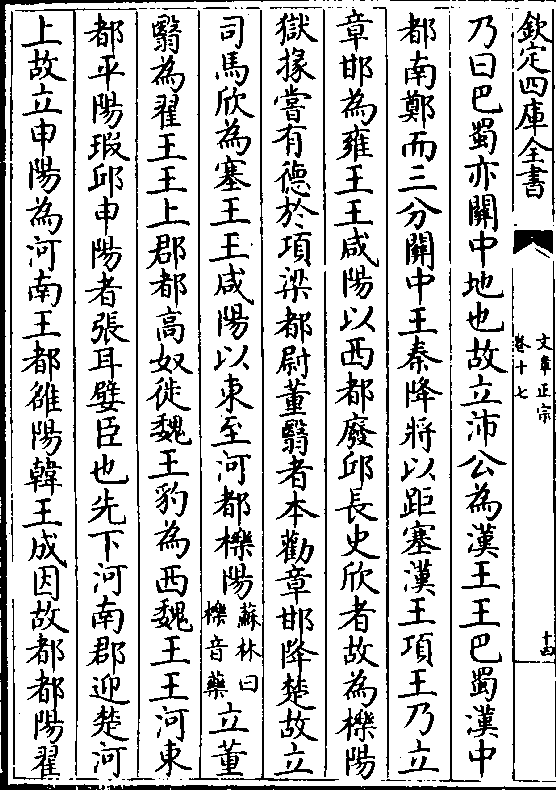 欽定四庫全書
文章正宗
卷十七
十四
乃曰巴蜀亦關中地也故立沛公為漢王王巴蜀漢中
都南鄭而三分關中王秦降將以距塞漢王項王乃立
章邯為雍王王咸陽以西都廢邱長史欣者故為櫟陽
獄掾嘗有德於項梁都尉董翳者本勸章邯降楚故立
司馬欣為塞王王咸陽以東至河都櫟陽蘇林曰櫟音藥立董
翳為翟王王上郡都高奴徙魏王豹為西魏王王河東
都平陽瑕邱申陽者張耳嬖臣也先下河南郡迎楚河
上故立申陽為河南王都雒陽韓王成因故都都陽翟